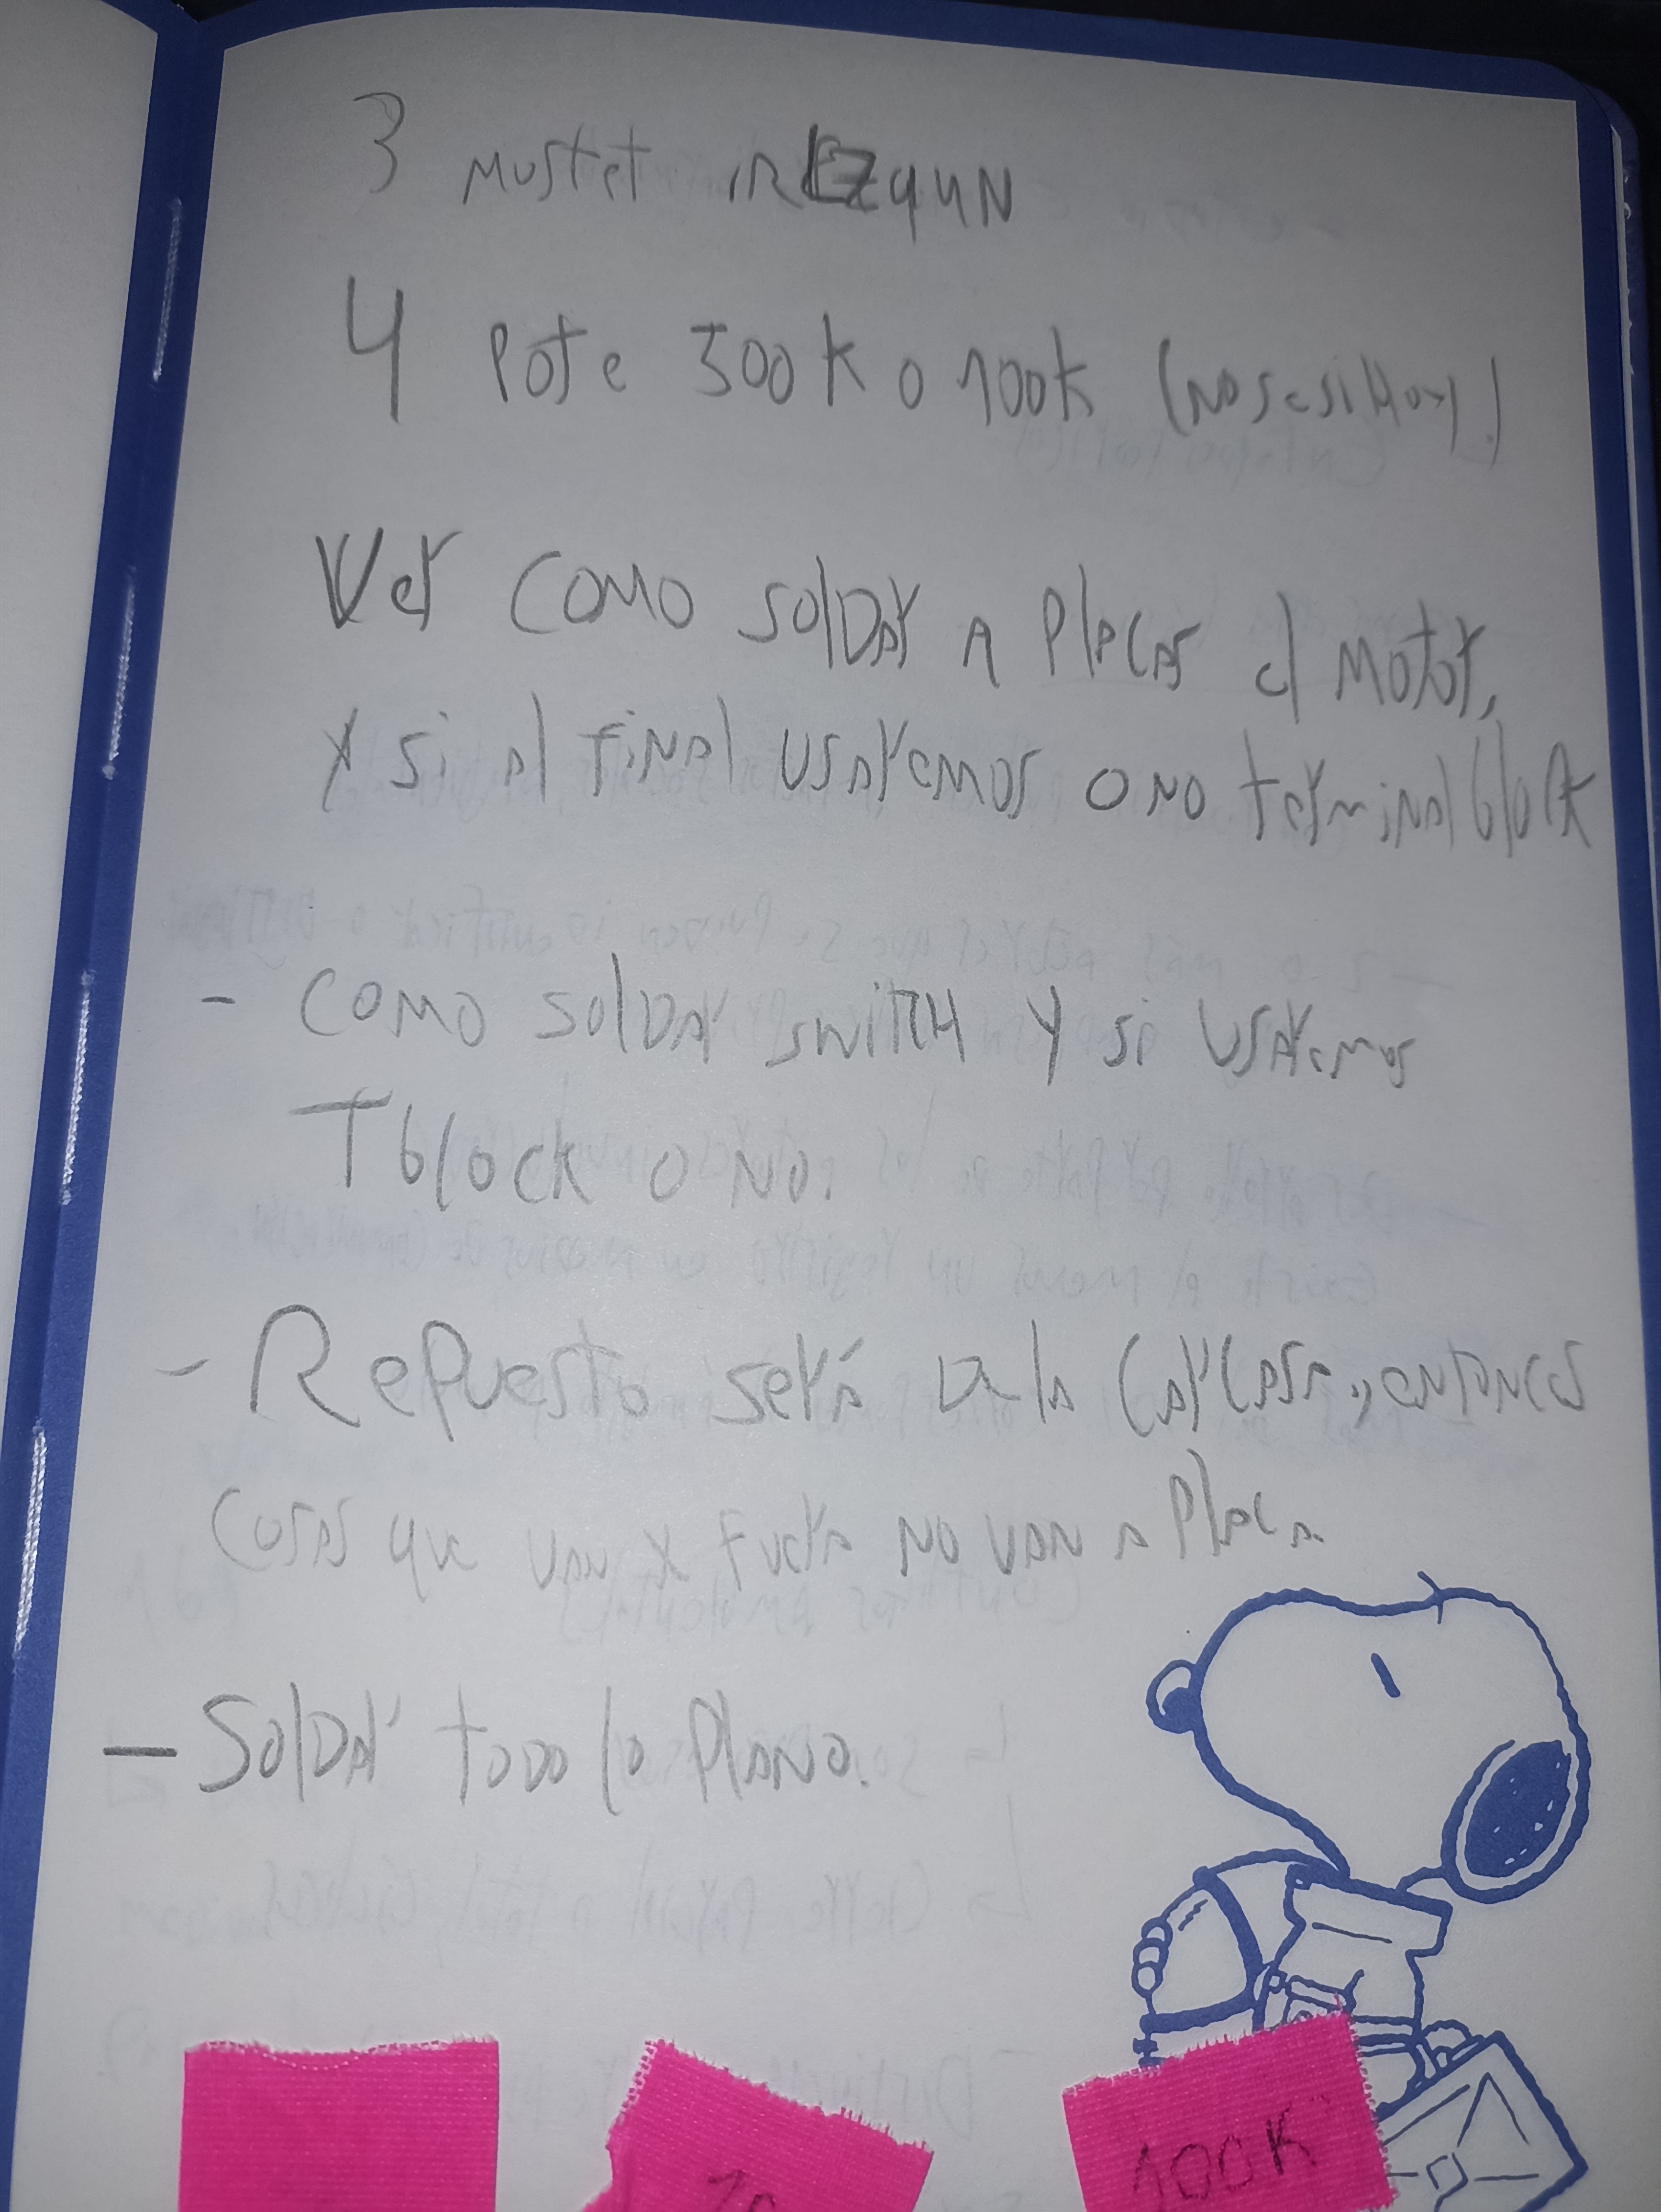 3 Mosfet IRLZ44N
4 Pote 500K o 100K (no se si Hay!)
Ver como soldar a Placas el motor,
y si al final usaremos o no terminal block
- como soldar switch y si usaremos
T block o no.
- Repuesto será de la Carcasa, entonces
Cosas que van x fuera no van a Placa.
- Soldar todo lo Plano.
10
100K